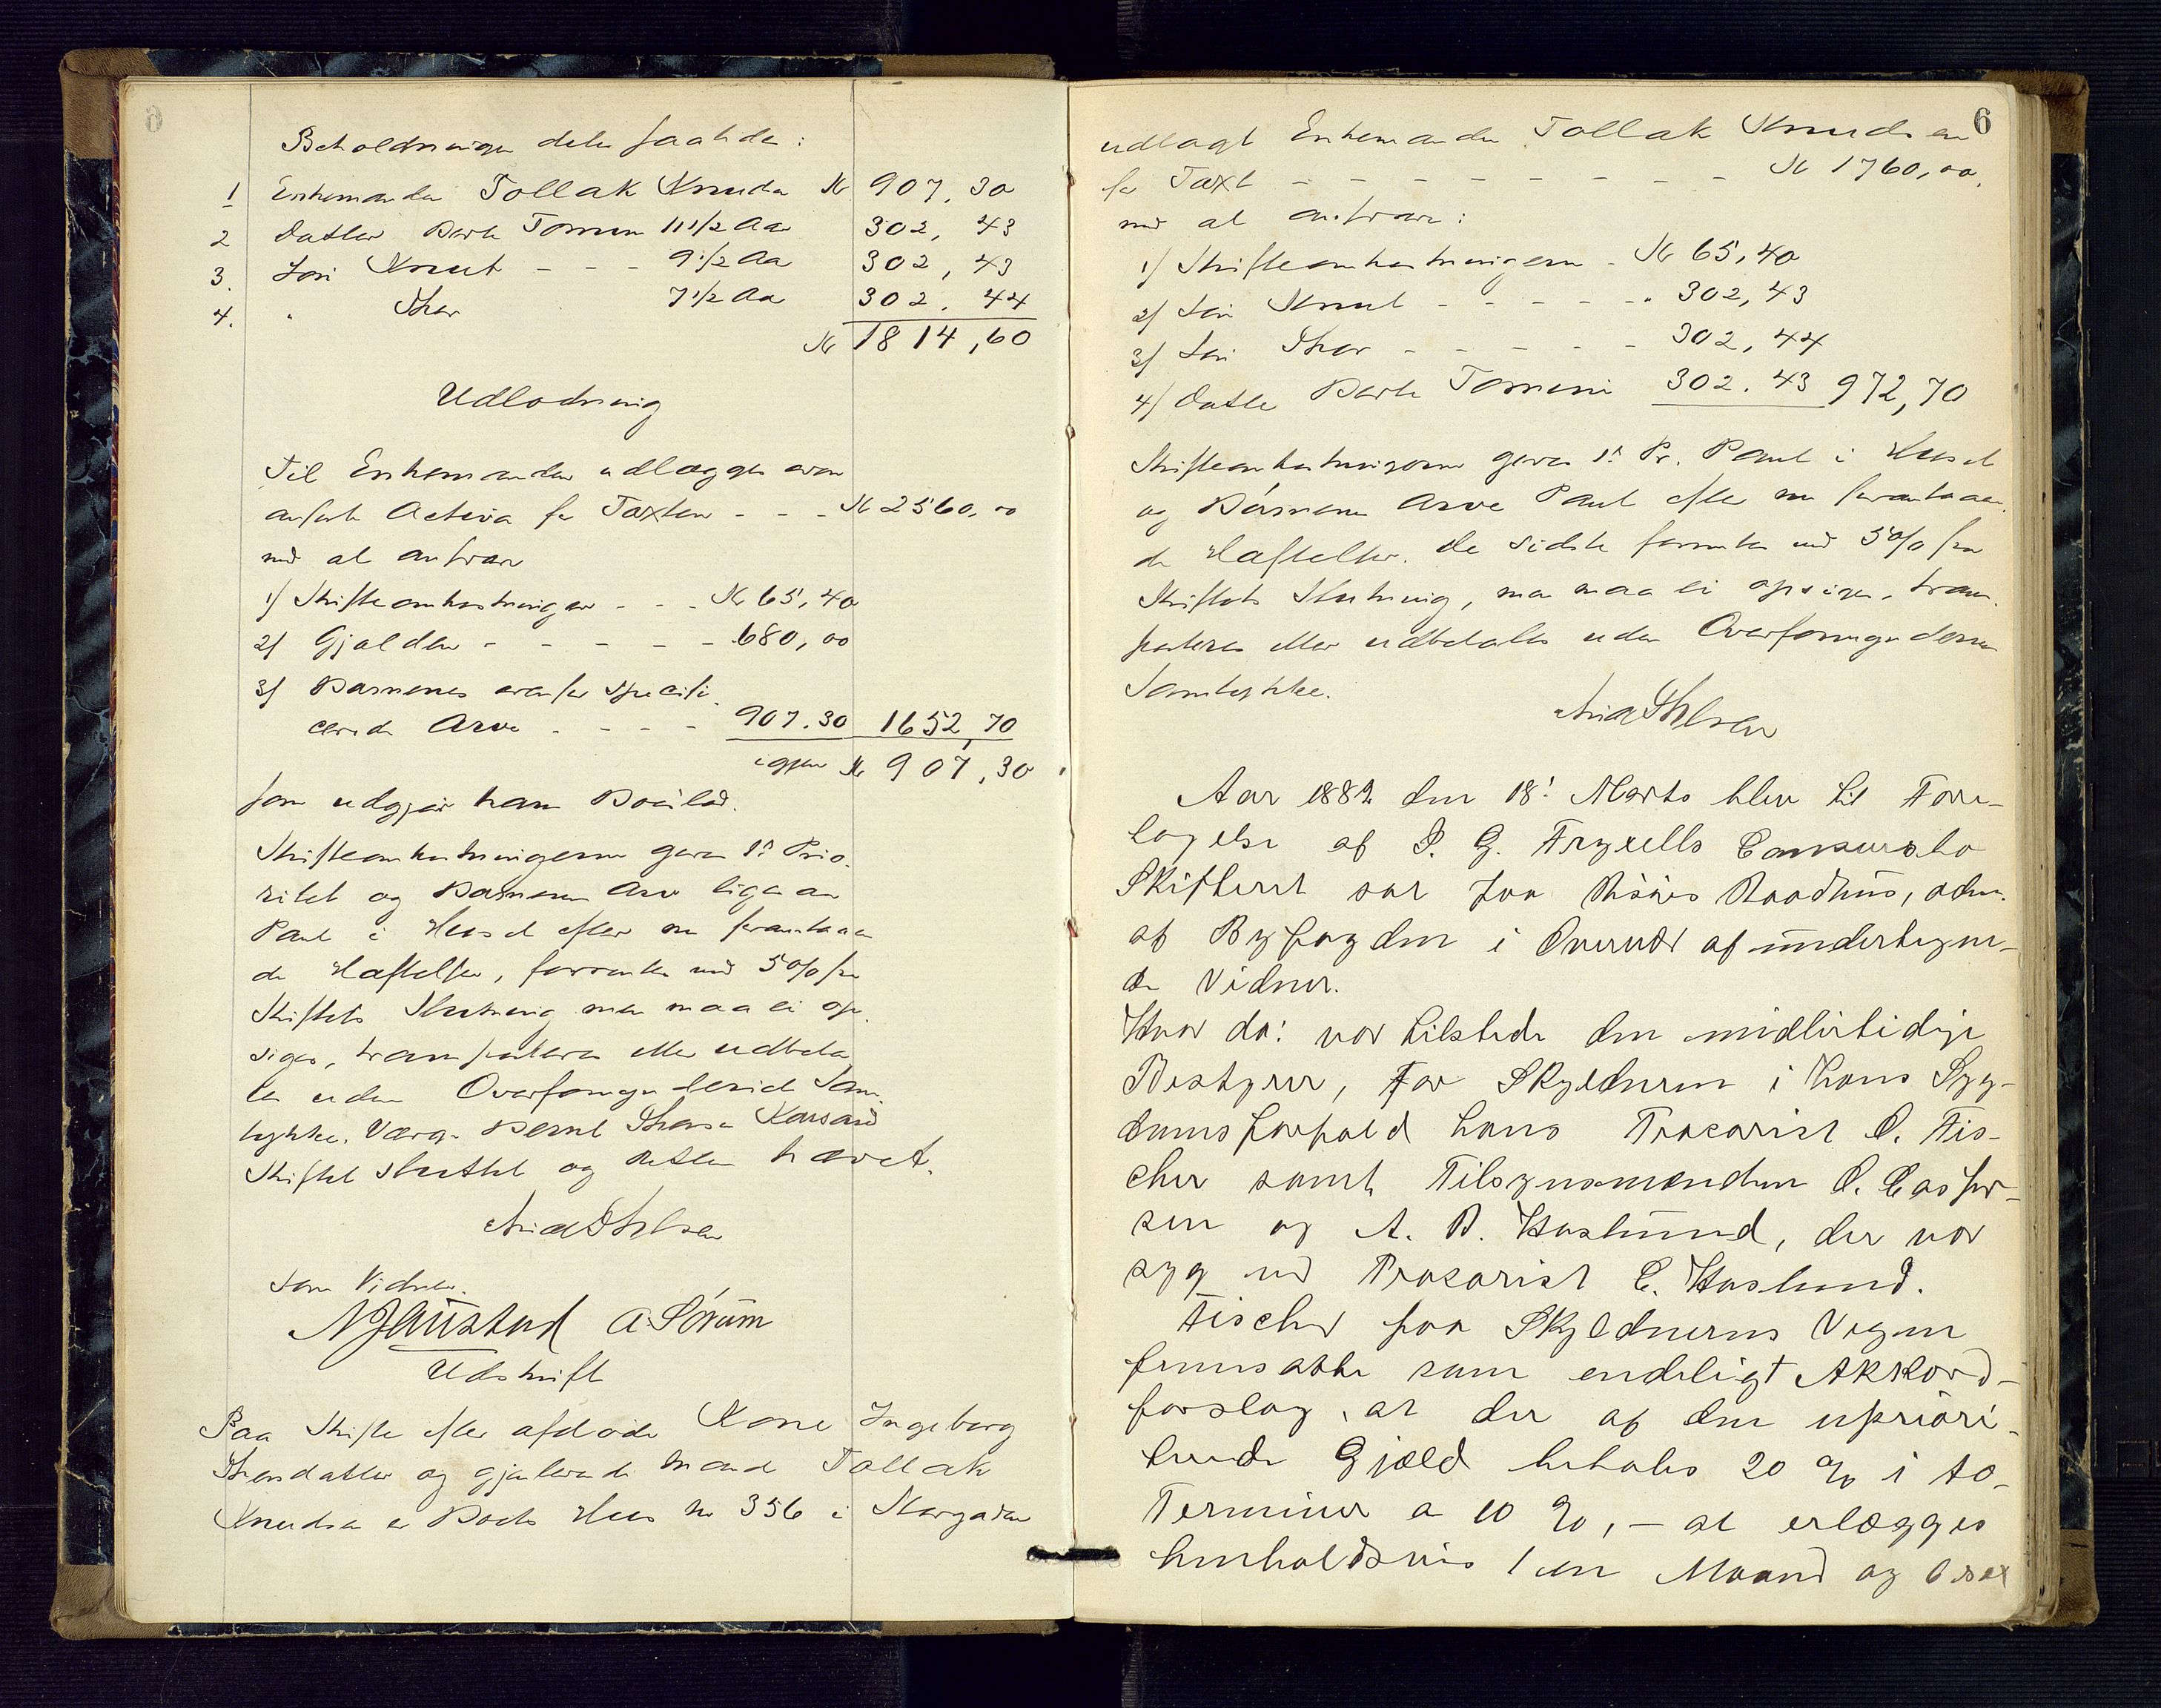 Beholdningen deles saaledes:
1 Enkemanden Tollak Knudsen Kr 907,30
2 Datter Berte Tomine 11 1/2 Aar 302,43
3. Søn Knut - - - 9 1/2 Aar 302,43
4. " Thor 7 1/2 Aar 302.44
Kr 1814,60
Udlodning
Til Enkemanden udlægges oven
anførte Activa for Taxten - - - Kr 2560,00
mod at ansvare
1) Skifteomkostninger - - - Kr 65,40
2) Gjælden - - - - - 680,00
3) Børnenes ovenfor specifi-
cerede Arve - - - - 907.30 1652,70
igjen Kr 907,30
som udgjør hans Boeslod.
Skifteomkostningerne gives 1ste Prio-
ritet og Børnenes Arv ligesaa
Pant i Huset efter nu foranstaaen
de Hæftelser, forrentes med 5% fra
Skiftets Slutning men maa ei op-
siges, transporteres eller udbeta
les uden Overformynderiets Sam-
tykke. Værge Bernt Thorsen
Skiftet sluttet og Retten hævet.
Som Vidner.
A. Sørum
Udskrift
Paa Skifte efter afdøde Kone Ingeborg
Thorsdatter og gjenlevende Mand Tollak
Knudsen er Boets Hus No 356 i
6
udlagt Enkemanden Tollak Knudsen
for Taxt - - - - - - - - - Kr 1760,00,
mod at ansvare:
1) Skifteomkostningerne - Kr 65,40
2) Søn Knut - - - - - " 302,43
3) Søn Thor - - - - - 302,44
4) Datter Berte Tomine 302.43 972,70
Skifteomkostningerne gives 1ste Pr. Pant i Huset
og Børnenes Arve Pant efter nu foranstaaen-
de Hæftelser. De sidste forrentes med 5% fra
Skiftets Slutning, men maa ei opsiges, trans-
porteres eller udbetales uden Overformynderiets
Samtykke.
Aar 1882 den 18' Marts blev til Fore-
tagelse af P. G. Fryxells Concursbo
Skifteret sat paa Risørs Raadhus, adm.
af Byfogden i Overvær af undertegne-
de Vidner.
Hvor da: var tilstede den midlertidige
Bestyrer, for Skyldneren i hans Syg-
domsforfald hans Prokurist O. Fis-
cher samt Tilsynsmændene O. Casper-
sen og A. B. Haslund, der var
syg ved Prokurist C. Haslund.
Fischer paa Skyldnerens Vegne
fremsatte som endeligt Akkord-
forslag, at der af den upriori-
terede Gjæld betales 20 % i to
Terminer a 10 %, - at erlægges
henholdsvis 1 en Maaned og 6 sex